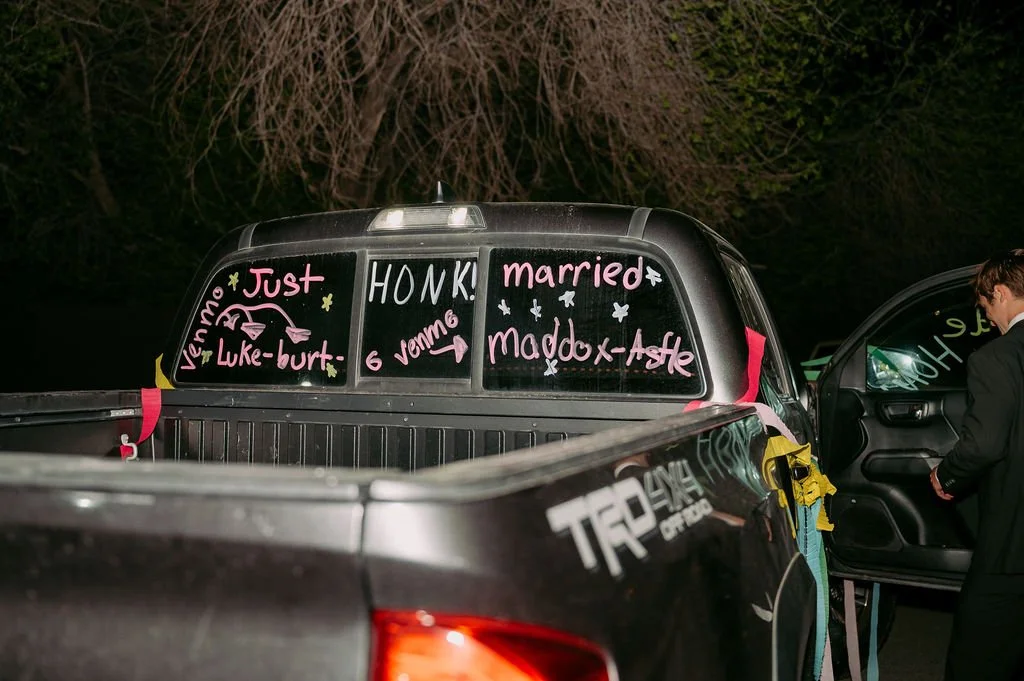 Just
venmo
Luke-burt-
HONK!
venmo
6
married
maddox-Astle
TRD 4X4
OFF ROAD
HONK